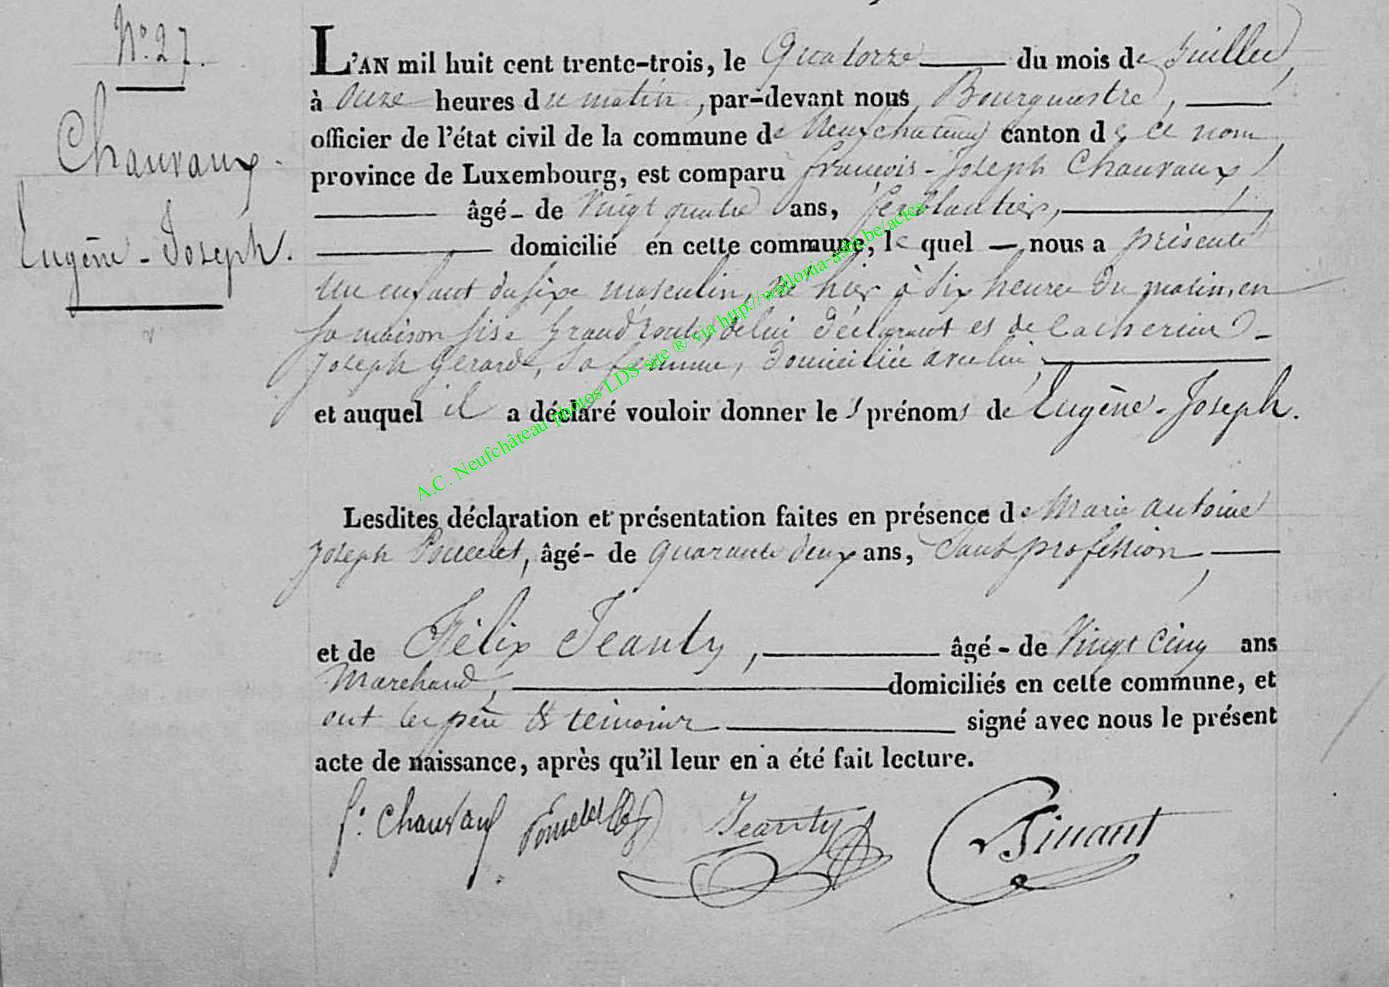 N° 27.
Chauvaux.
Eugène-Joseph.
L'AN mil huit cent trente-trois, le Quatorze du mois de Juillet,
à Onze heures du matin, par-devant nous Bourgmestre,
officier de l'état civil de la commune de Neufchateau canton de ce nom
province de Luxembourg, est comparu françois-Joseph Chauvaux,
âgé- de Vingt quatre ans, ferblantier,
domicilié en cette commune, le quel nous a présenté
un enfant du sexe masculin, né hier à Six heures du matin, en
sa maison sise Grand'route, de lui déclarant et de Catherine-
Joseph Gerard, sa femme, domiciliée avec lui,
et auquel il a déclaré vouloir donner les prénoms de Eugène-Joseph.
Lesdites déclaration et présentation faites en présence de Marie antoine
Joseph Poncelet, âgé- de quarante deux ans, Sans profession,
et de Félix Jeanty, âgé- de Vingt Cinq ans
Marchand, domiciliés en cette commune, et
ont les père et témoins signé avec nous le présent
acte de naissance, après qu'il leur en a été fait lecture.
f. Chauvaux Poncelet Jeanty Binant
A.C. Neufchâteau photos LDS site ® via http://walloma-asbl.be/actes